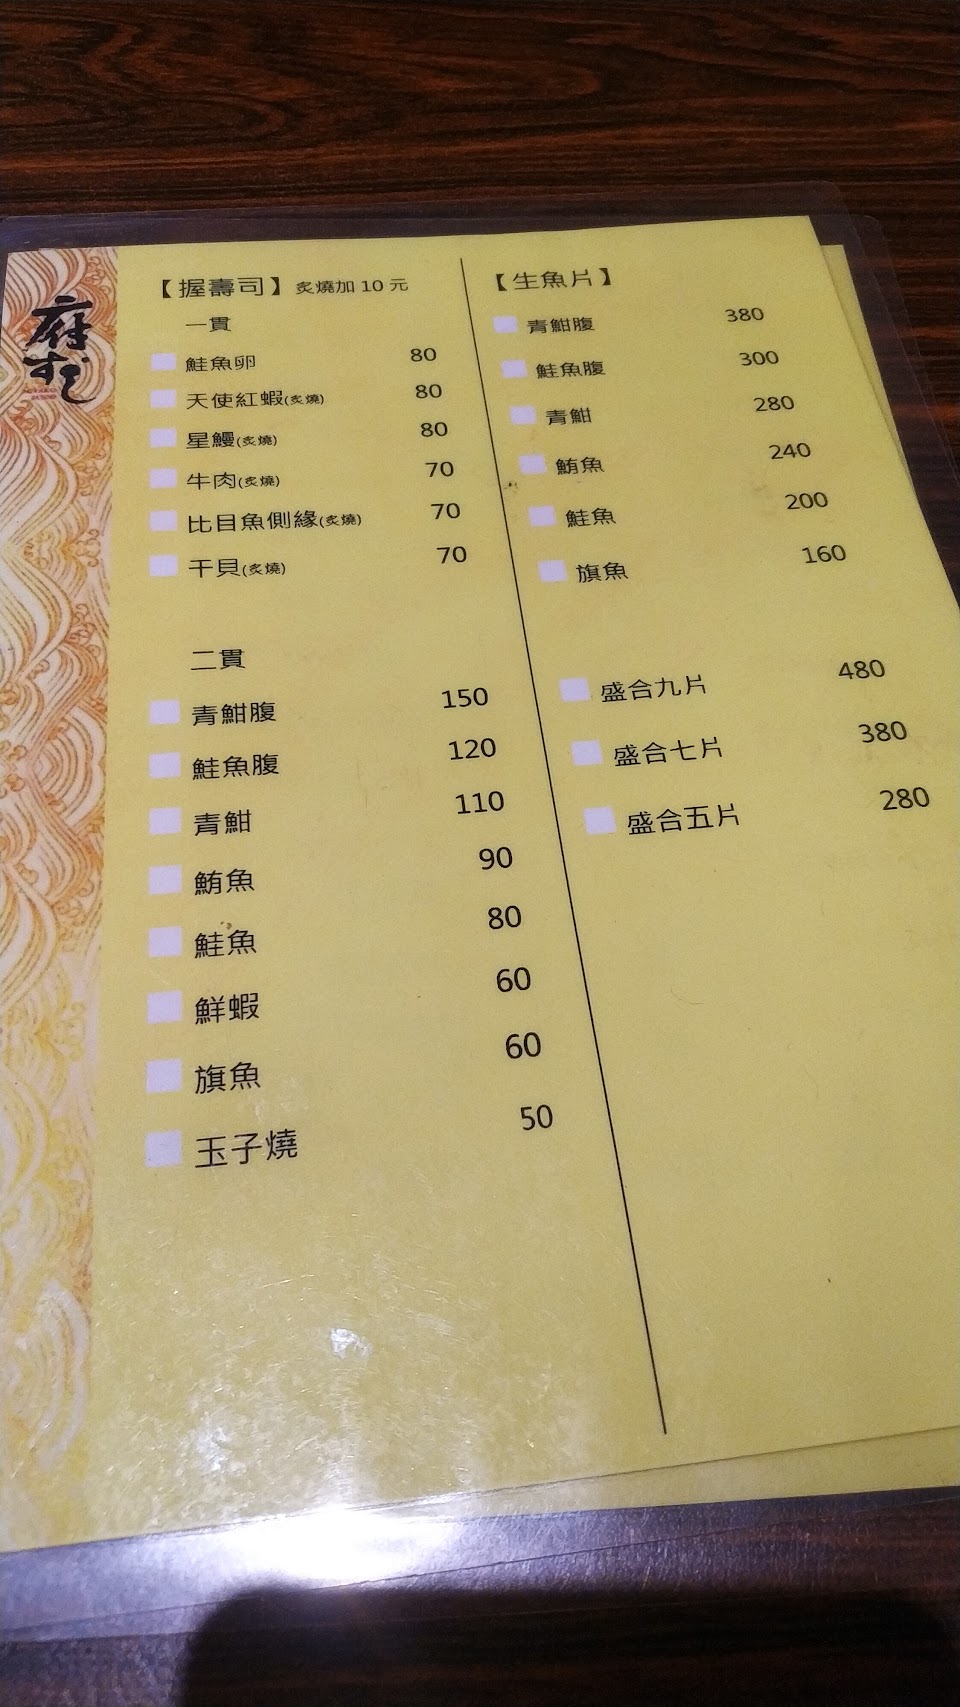 府
【握壽司】炙燒加10元
一貫
鮭魚卵 80
天使紅蝦(炙燒) 80
星鰻(炙燒) 80
牛肉(炙燒) 70
比目魚側緣(炙燒) 70
干貝(炙燒) 70
二貫
青魽腹 150
鮭魚腹 120
青魽 110
鮪魚 90
鮭魚 80
鮮蝦 60
旗魚 60
玉子燒 50
【生魚片】
青魽腹 380
鮭魚腹 300
青魽 280
鮪魚 240
鮭魚 200
旗魚 160
盛合九片 480
盛合七片 380
盛合五片 280